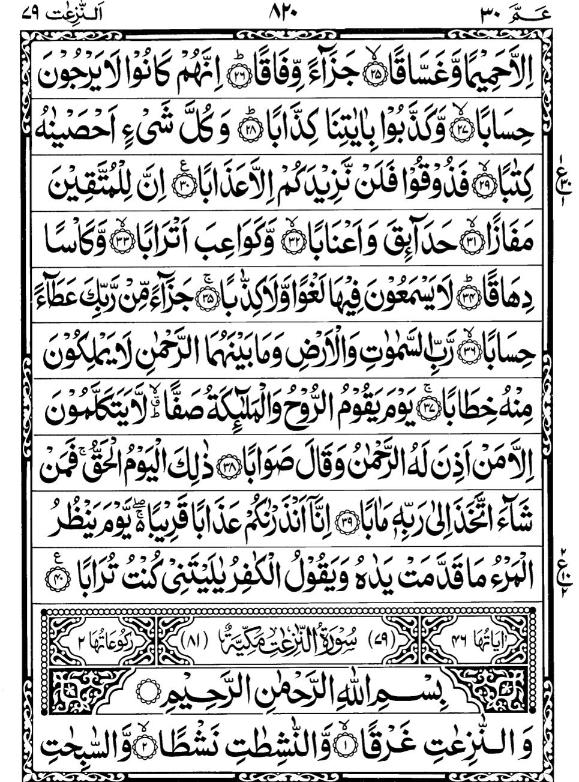 عَمَّ ٣٠ ٨٢٠ اَلنّٰزِعٰت ٧٩
اِلَّا حَمِيْمًا وَّغَسَّاقًا ﴿٢٥﴾ جَزَآءً وِّفَاقًا ﴿٢٦﴾ اِنَّهُمْ كَانُوْا لَا يَرْجُوْنَ
حِسَابًا ﴿٢٧﴾ وَّكَذَّبُوْا بِاٰيٰتِنَا كِذَّابًا ﴿٢٨﴾ وَكُلَّ شَيْءٍ اَحْصَيْنٰهُ
كِتٰبًا ﴿٢٩﴾ فَذُوْقُوْا فَلَنْ نَّزِيْدَكُمْ اِلَّا عَذَابًا ﴿٣٠﴾ اِنَّ لِلْمُتَّقِيْنَ
مَفَازًا ﴿٣١﴾ حَدَآئِقَ وَاَعْنَابًا ﴿٣٢﴾ وَّكَوَاعِبَ اَتْرَابًا ﴿٣٣﴾ وَّكَاْسًا
دِهَاقًا ﴿٣٤﴾ لَا يَسْمَعُوْنَ فِيْهَا لَغْوًا وَّلَا كِذّٰبًا ﴿٣٥﴾ جَزَآءً مِّنْ رَّبِّكَ عَطَآءً
حِسَابًا ﴿٣٦﴾ رَّبِّ السَّمٰوٰتِ وَالْاَرْضِ وَمَا بَيْنَهُمَا الرَّحْمٰنِ لَا يَمْلِكُوْنَ
مِنْهُ خِطَابًا ﴿٣٧﴾ يَوْمَ يَقُوْمُ الرُّوْحُ وَالْمَلٰٓئِكَةُ صَفًّا ۙ لَّا يَتَكَلَّمُوْنَ
اِلَّا مَنْ اَذِنَ لَهُ الرَّحْمٰنُ وَقَالَ صَوَابًا ﴿٣٨﴾ ذٰلِكَ الْيَوْمُ الْحَقُّ ۚ فَمَنْ
شَآءَ اتَّخَذَ اِلٰى رَبِّهٖ مَاٰبًا ﴿٣٩﴾ اِنَّآ اَنْذَرْنٰكُمْ عَذَابًا قَرِيْبًا ۖ يَّوْمَ يَنْظُرُ
الْمَرْءُ مَا قَدَّمَتْ يَدٰهُ وَيَقُوْلُ الْكٰفِرُ يٰلَيْتَنِيْ كُنْتُ تُرٰبًا ﴿٤٠﴾
اٰيَاتُهَا ٤٦ (٧٩) سُوْرَةُ النّٰزِعٰتِ مَكِّيَّةٌ (٨١) رُكُوْعَاتُهَا ٢
بِسْمِ اللّٰهِ الرَّحْمٰنِ الرَّحِيْمِ
وَالنّٰزِعٰتِ غَرْقًا ﴿١﴾ وَّالنّٰشِطٰتِ نَشْطًا ﴿٢﴾ وَّالسّٰبِحٰتِ